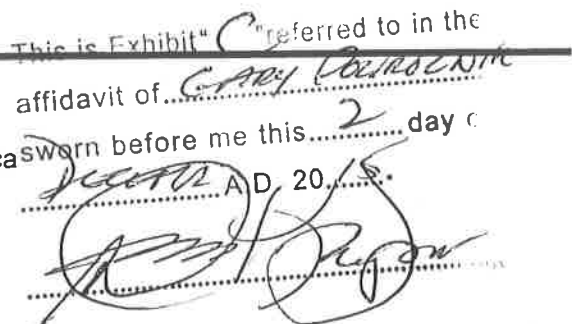 This is Exhibit "C" referred to in the
affidavit of GARY
ca sworn before me this 2 day o
A.D. 2015.